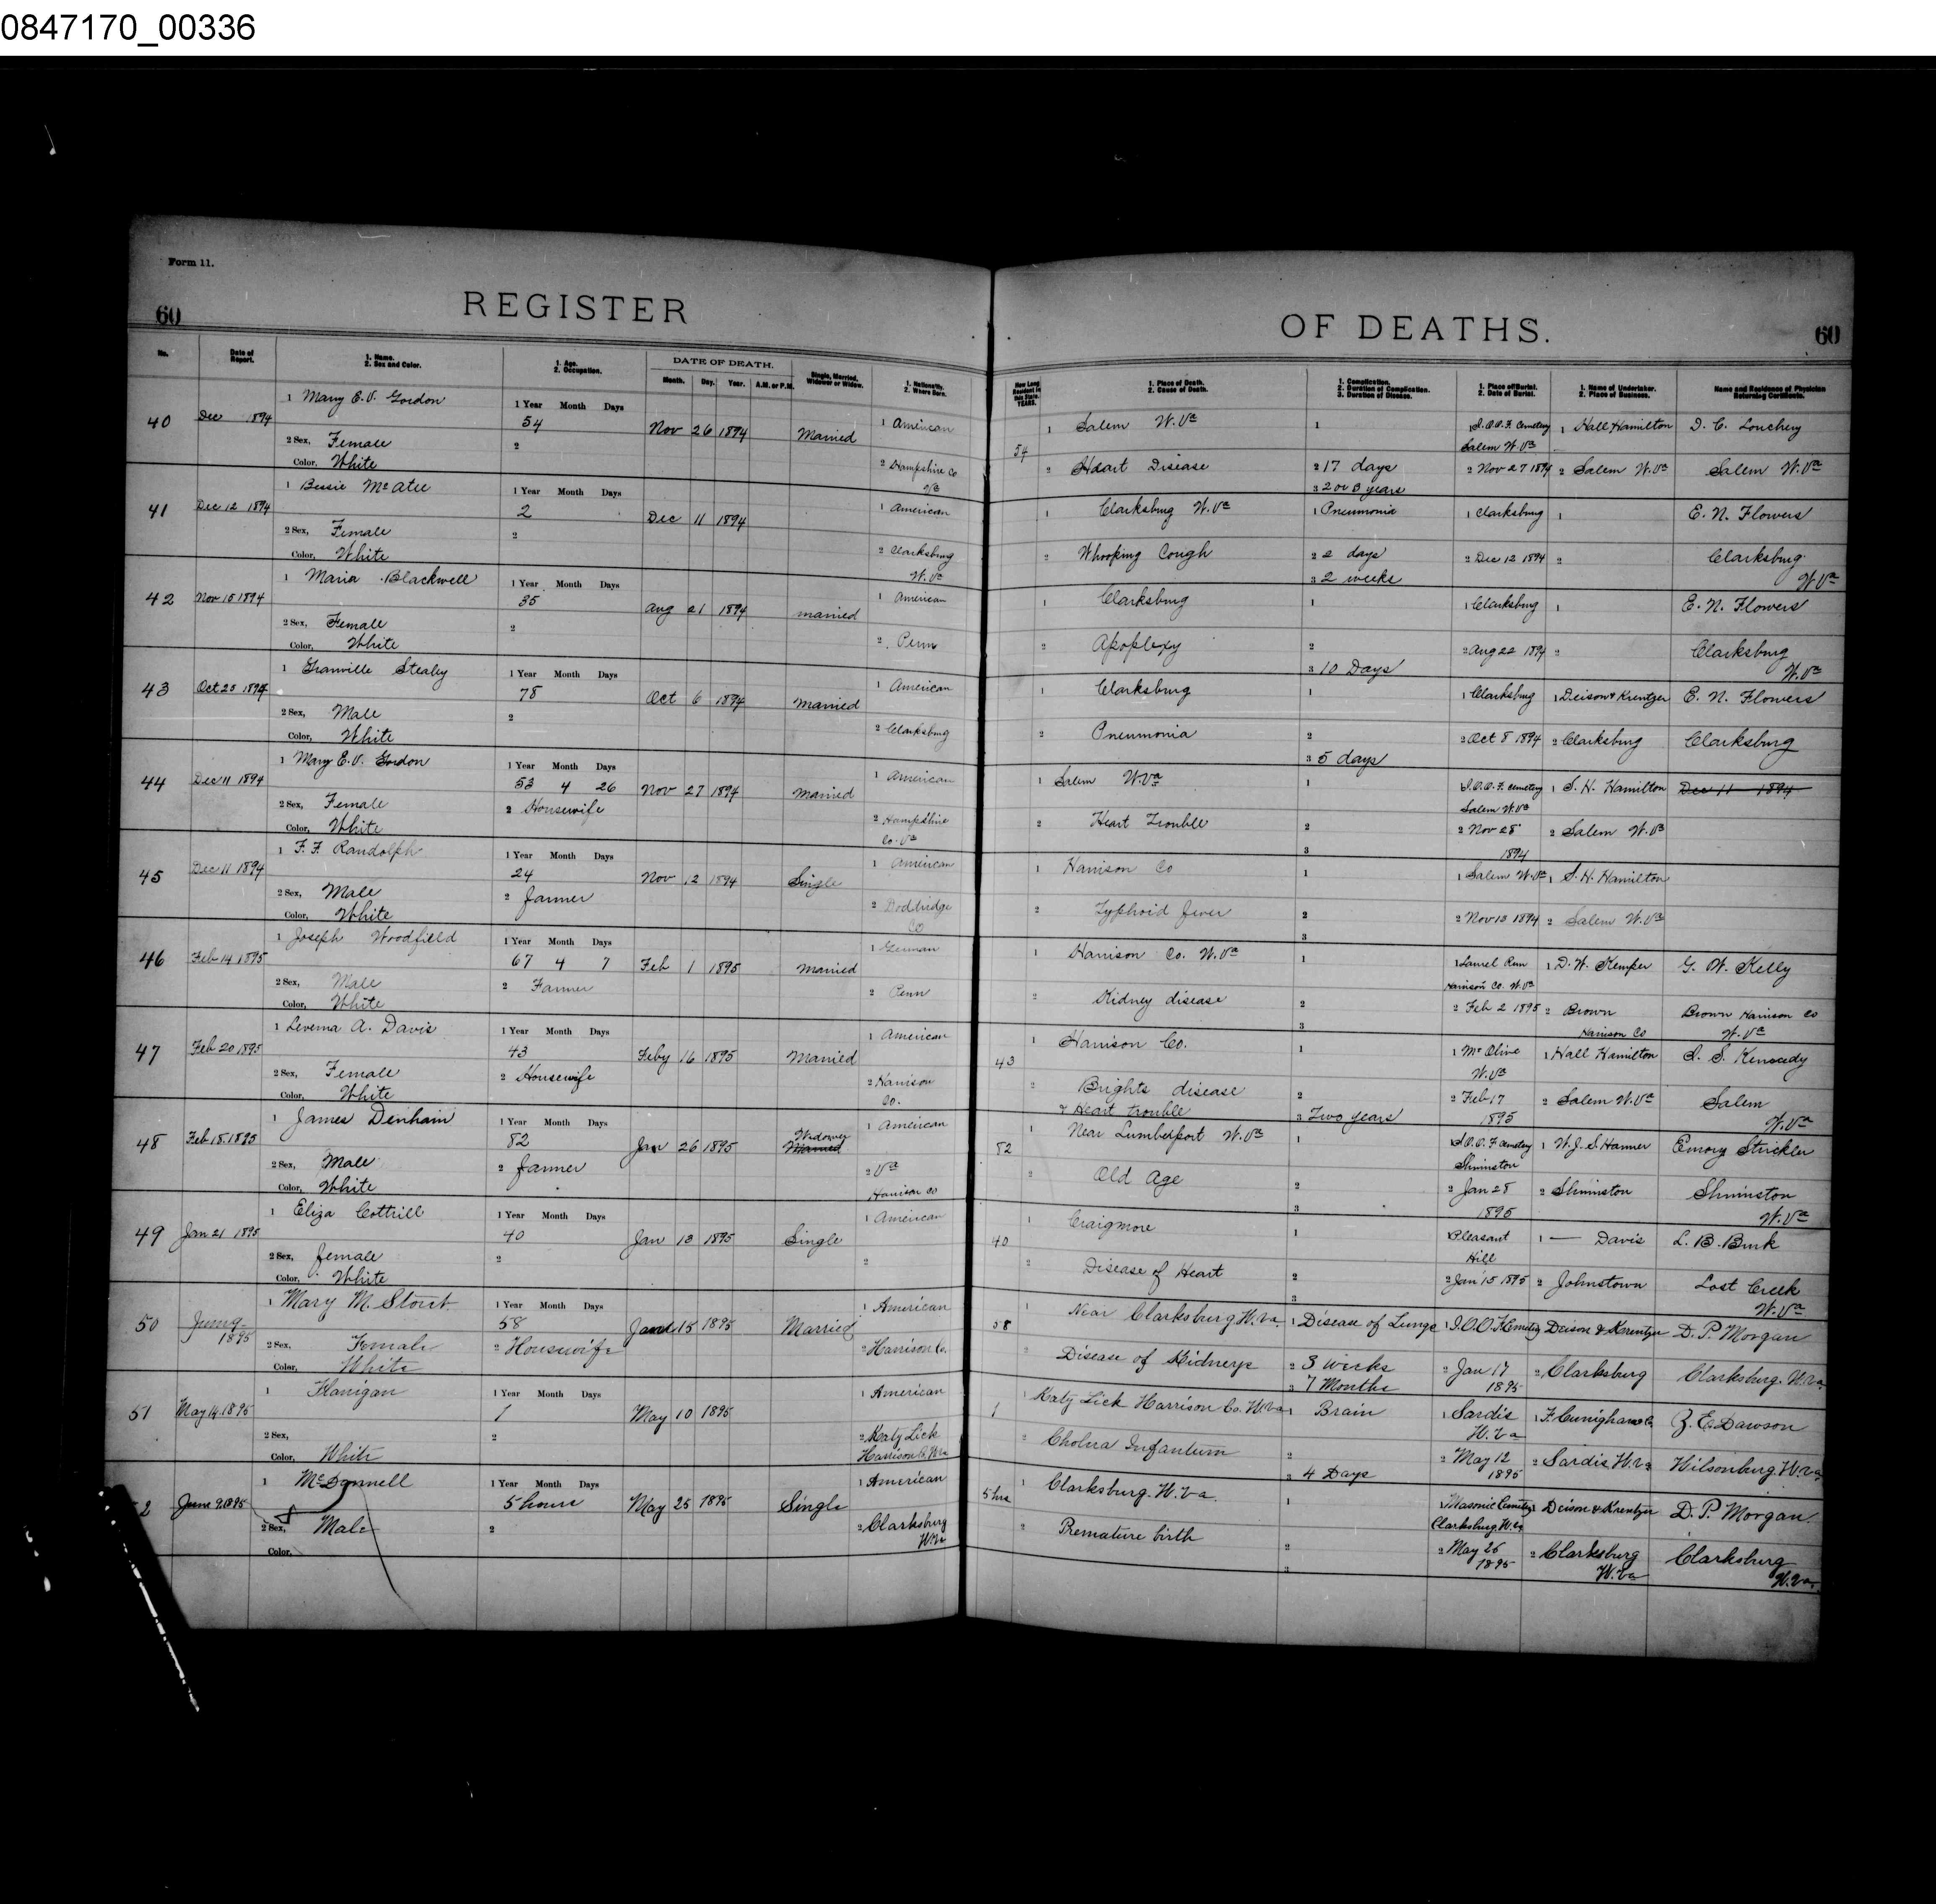 0847170_00336
Form 11.
60 REGISTER
OF DEATHS. 60
No. Date of Report. 1. Name. 2. Sex and Color. 1. Age. 2. Occupation. DATE OF DEATH. Month. Day. Year. A.M. or P.M. Single, Married, Widower or Widow. 1. Nationality. 2. Where Born.
How Long Resident in this State. YEARS. 1. Place of Death. 2. Cause of Death. 1. Complication. 2. Duration of Complication. 3. Duration of Disease. 1. Place of Burial. 2. Date of Burial. 1. Name of Undertaker. 2. Place of Business. Name and Residence of Physician Returning Certificate.
1 Mary E. V. Gordon 1 Year Month Days
40 Dec 1894 54 Nov 26 1894 Married 1 American
2 Sex, Female 2
Color, White 2 Hampshire Co Va
54 1 Salem W. Va 1 1 I.O.O.F. Cemetery Salem W. Va 1 Hall Hamilton
2 Heart Disease 2 17 days 2 Nov 27 1894 2 Salem W. Va Salem W. Va
3 2 or 3 years
1 Bessie McAtee 1 Year Month Days
41 Dec 12 1894 2 Dec 11 1894 1 American
2 Sex, Female 2
Color, White 2 Clarksburg W. Va
1 Clarksburg W. Va 1 Pneumonia 1 Clarksburg 1 E. N. Flowers
2 Whooping Cough 2 2 days 2 Dec 12 1894 2 Clarksburg W. Va
3 2 weeks
1 Maria Blackwell 1 Year Month Days
42 Nov 15 1894 35 Aug 21 1894 married 1 American
2 Sex, Female 2
Color, White 2 Penn
1 Clarksburg 1 1 Clarksburg 1 E. N. Flowers
2 Apoplexy 2 2 Aug 22 1894 2 Clarksburg W. Va
3 10 Days
1 Granville Stealey 1 Year Month Days
43 Oct 25 1894 78 Oct 6 1894 Married 1 American
2 Sex, Male 2
Color, White 2 Clarksburg
1 Clarksburg 1 1 Clarksburg 1 Deison & Krentzer E. N. Flowers
2 Pneumonia 2 2 Oct 8 1894 2 Clarksburg Clarksburg
3 5 days
1 Mary E. V. Gordon 1 Year Month Days
44 Dec 11 1894 53 4 26 Nov 27 1894 Married 1 American
2 Sex, Female 2 Housewife
Color, White 2 Hampshire Co. Va
1 Salem W. Va 1 I.O.O.F. Cemetery Salem W. Va 1 S. H. Hamilton Dec 11 1894
2 Heart Trouble 2 2 Nov 28 1894 2 Salem W. Va
3
1 F. F. Randolph 1 Year Month Days
45 Dec 11 1894 24 Nov 12 1894 Single 1 American
2 Sex, Male 2 Farmer
Color, White 2 Dodridge Co
1 Harrison Co 1 1 Salem W. Va 1 S. H. Hamilton
2 Typhoid fever 2 2 Nov 13 1894 2 Salem W. Va
3
1 Joseph Woodfield 1 Year Month Days
46 Feb 14 1895 67 4 7 Feb 1 1895 Married 1 German
2 Sex, Male 2 Farmer
Color, White 2 Penn
1 Harrison Co. W. Va 1 1 Laurel Run Harrison Co. W. Va 1 D. W. Kemper G. W. Kelly
2 Kidney disease 2 2 Feb 2 1895 2 Brown Harrison Co Brown Harrison Co W. Va
3
1 Leverna A. Davis 1 Year Month Days
47 Feb 20 1895 43 Feby 16 1895 Married 1 American
2 Sex, Female 2 Housewife
Color, White 2 Harrison Co.
43 1 Harrison Co. 1 1 Mt Olive W. Va 1 Hall Hamilton
2 Brights disease & Heart trouble 2 2 Feb 17 1895 2 Salem W. Va Salem W. Va
3 Two years
1 James Denham 1 Year Month Days
48 Feb 18 1895 82 Jan 26 1895 Widower Married 1 American
2 Sex, Male 2 Farmer
Color, White 2 Va Harrison Co
82 1 Near Lumberport W. Va 1 1 I.O.O.F Cemetery Shinnston 1 W. J. S. Harmer Emory Strickler
2 Old Age 2 2 Jan 28 1895 2 Shinnston Shinnston W. Va
3
1 Eliza Cottrill 1 Year Month Days
49 Jan 21 1895 40 Jan 13 1895 Single 1 American
2 Sex, Female 2
Color, White 2
40 1 Craigmore 1 1 Pleasant Hill 1 — Davis L. B. Burk
2 Disease of Heart 2 2 Jan 15 1895 2 Johnstown Lost Creek W. Va
3
1 Mary M. Stout 1 Year Month Days
50 June 9 1895 58 15 1895 Married 1 American
2 Sex, Female 2 Housewife
Color, White 2 Harrison Co.
58 1 Near Clarksburg W. Va. 1 Disease of Lungs 1 I.O.O.F. Cemetery Deison & Krentzer D. P. Morgan
2 Disease of Kidneys 2 3 weeks 2 Jan 17 1895 2 Clarksburg Clarksburg. W. Va.
3 7 Months
1 Flanigan 1 Year Month Days
51 May 14. 1895 1 May 10 1895 1 American
2 Sex, 2
Color, White 2 Katy Lick Harrison Co. W. Va
1 1 Katy Lick Harrison Co. W. Va 1 Brain 1 Sardis W. Va Z. E. Dawson
2 Cholera Infantum 2 2 May 12 1895 2 Sardis W. Va Wilsonburg. W. Va.
3 4 Days
1 McDonnell 1 Year Month Days
2 June 9. 1895 5 hours May 25 1895 Single 1 American
2 Sex, Male 2
Color, 2 Clarksburg W. Va
5 hrs 1 Clarksburg. W. Va. 1 1 Masonic Cemetery Clarksburg. W. Va Deison & Krentzer D. P. Morgan.
2 Premature birth 2 2 May 26 1895 2 Clarksburg W. Va Clarksburg W. Va.
3